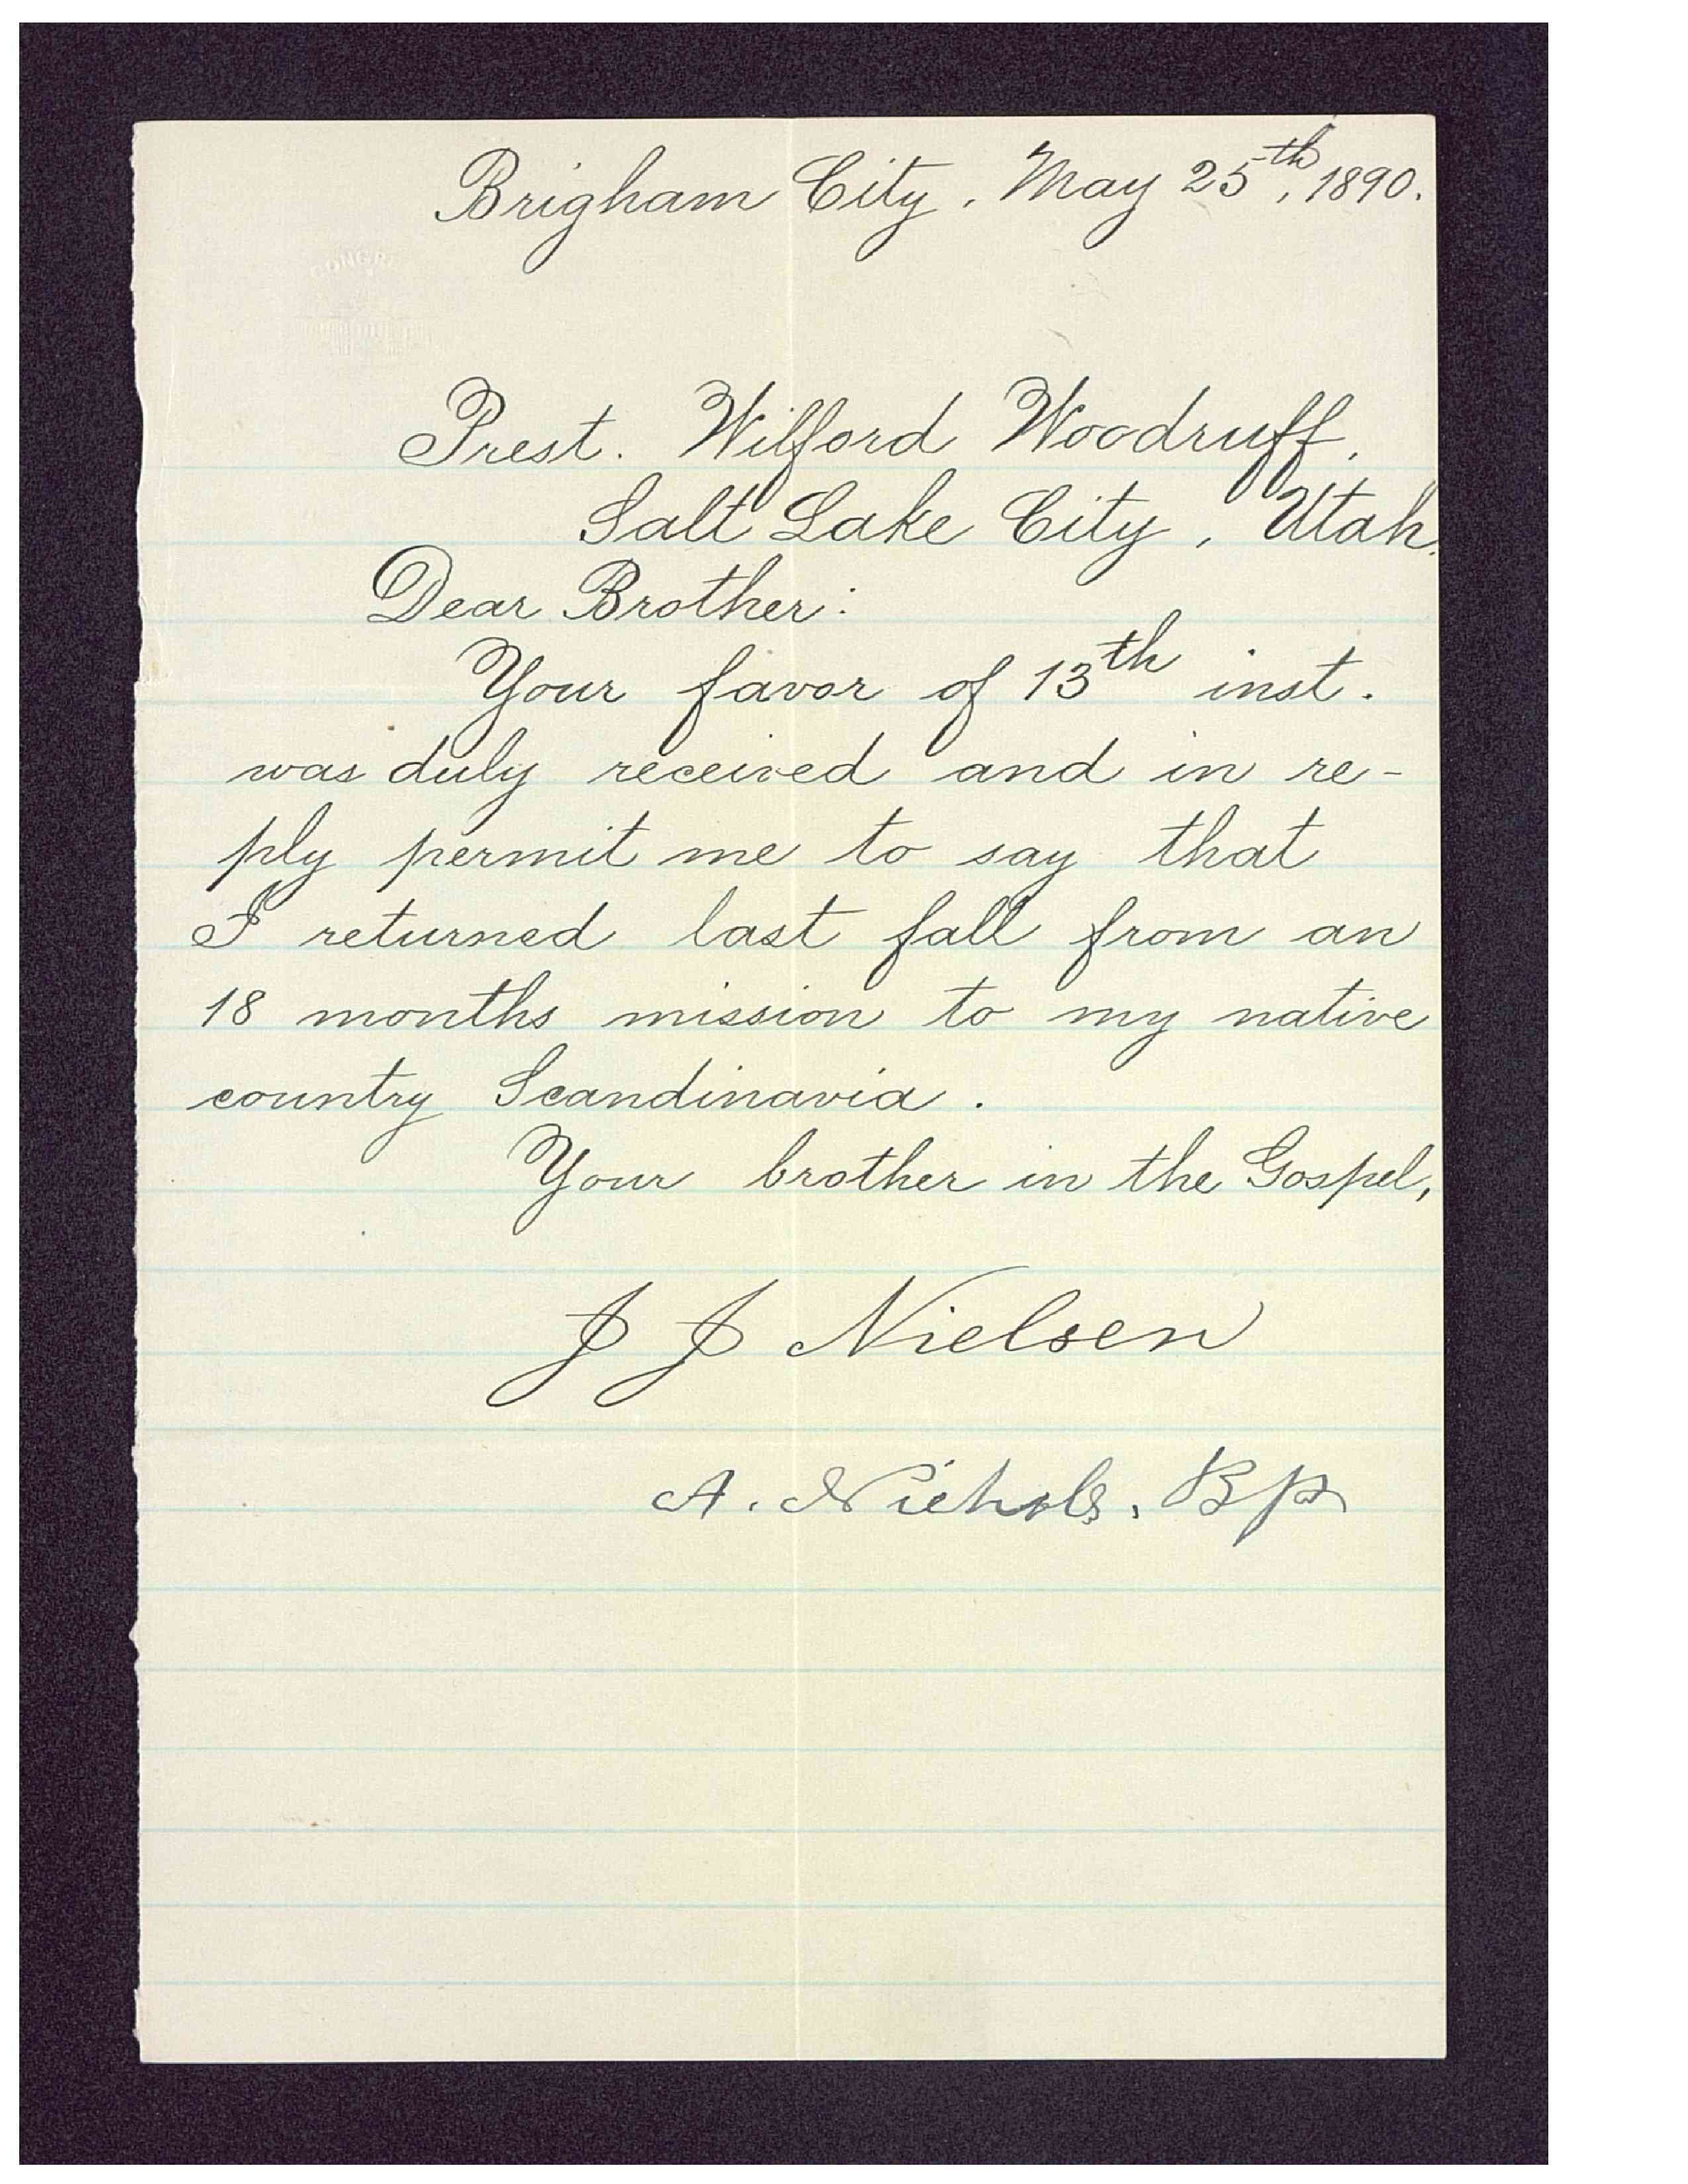 CONGR
Brigham City, May 25th, 1890.
Prest. Wilford Woodruff,
Salt Lake City, Utah.
Dear Brother:
Your favor of 13th inst.
was duly received and in re-
ply permit me to say that
I returned last fall from an
18 months mission to my native
country Scandinavia.
Your brother in the Gospel,
J J Nielsen
A. Nichols, Bp